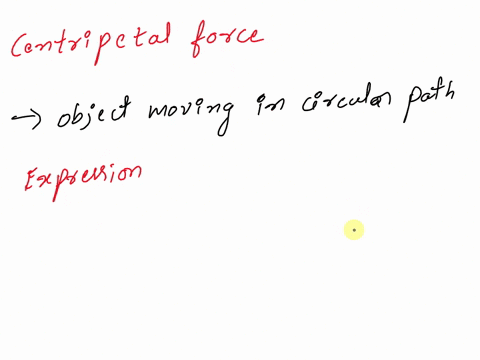 Centripetal force
→ object moving in circular path
Expression